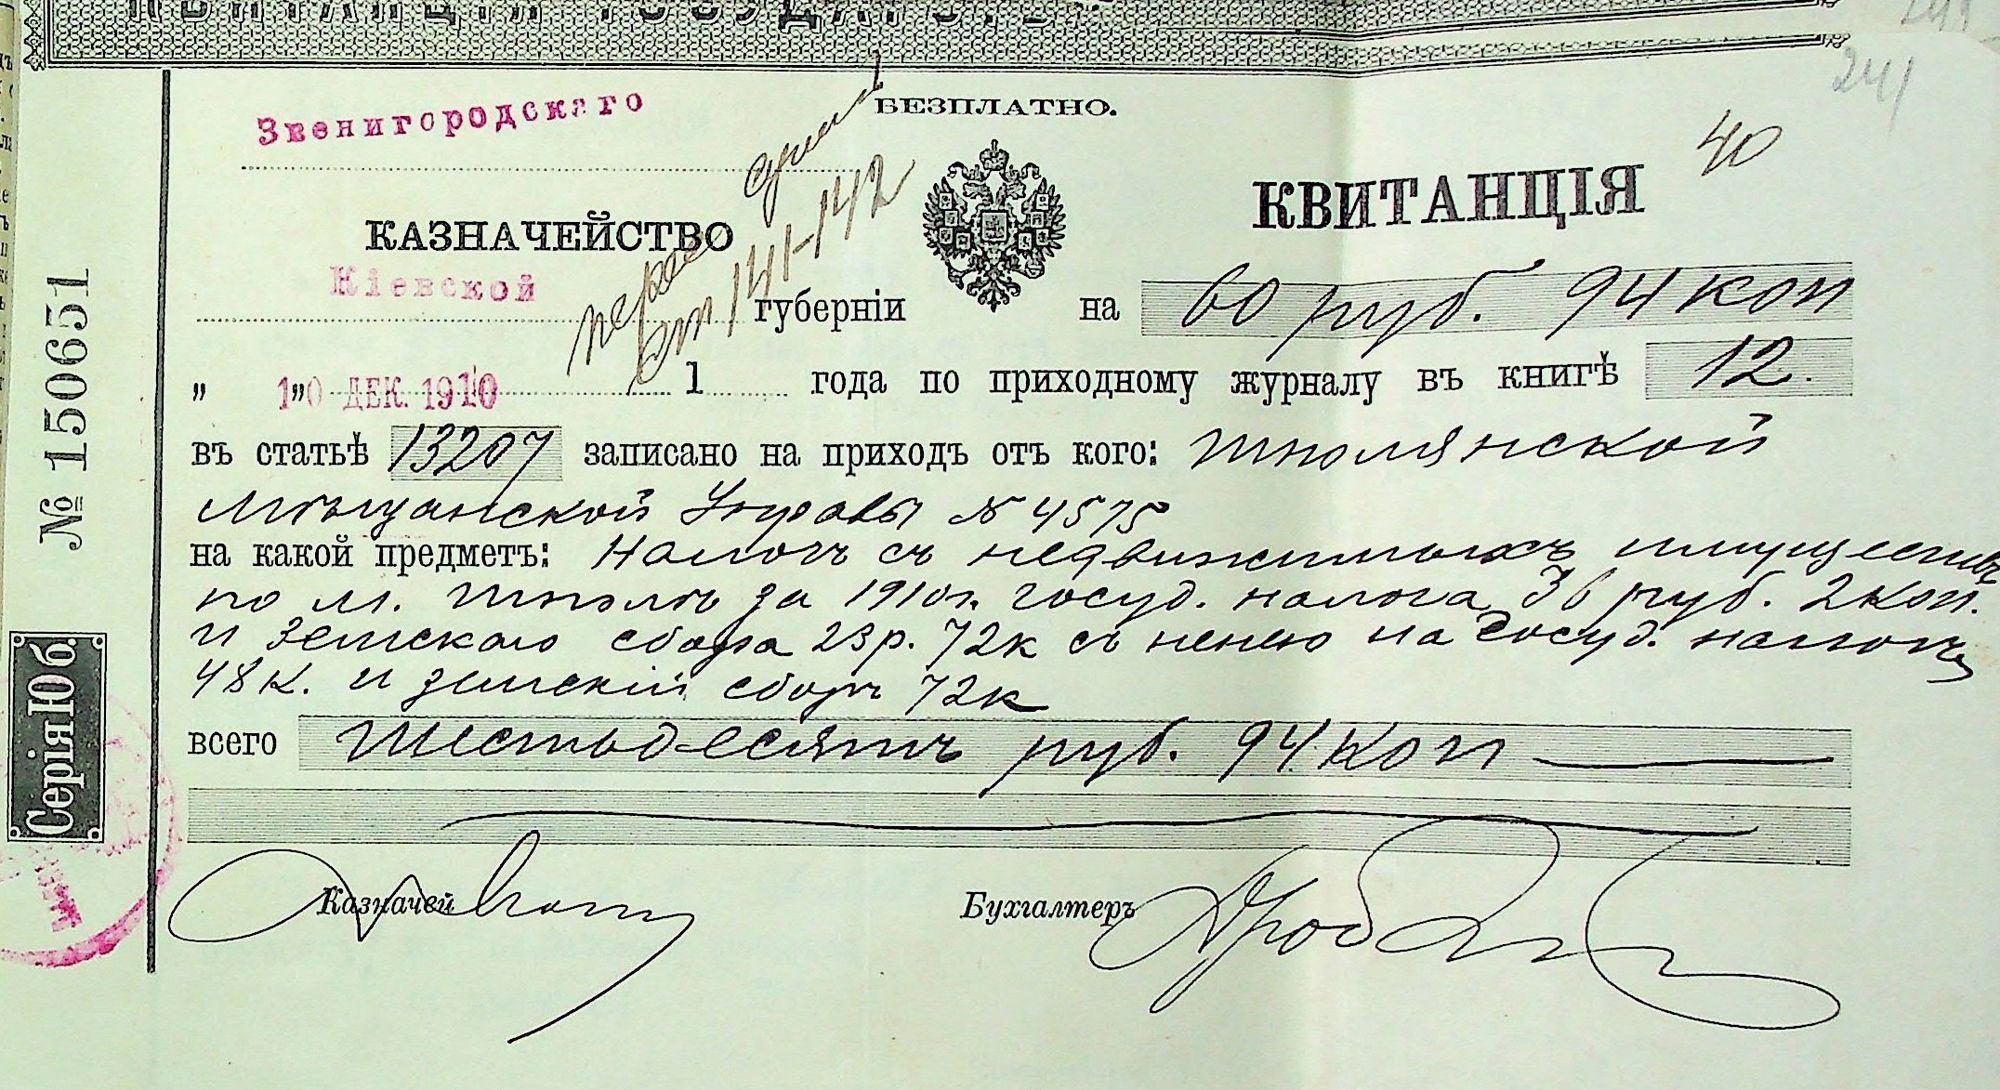 КВИТАНЦІЯ ГОСУДАРСТ
241
Звенигородскаго
БЕЗПЛАТНО.
40
КАЗНАЧЕЙСТВО
КВИТАНЦІЯ
Кіевской губерніи на 60 руб. 94 коп
ст 141-142
„ 10 ДЕК. 1910 1 года по приходному журналу въ книгѣ 12.
въ статьѣ 13207 записано на приходъ отъ кого: Шполянской
Мѣщанской Управы № 4575
на какой предметъ: Налогъ съ недвижимыхъ имуществъ
по м. Шполѣ за 1910 г. госуд. налога 36 руб. 2 коп.
и Земскаго сбора 23 р. 72 к съ пенею на Госуд. налогъ
48 к. и земскій сборъ 72 к
всего Шестьдесятъ руб. 94 коп
Казначей
Бухгалтеръ
№ 150651
Серія Юб.